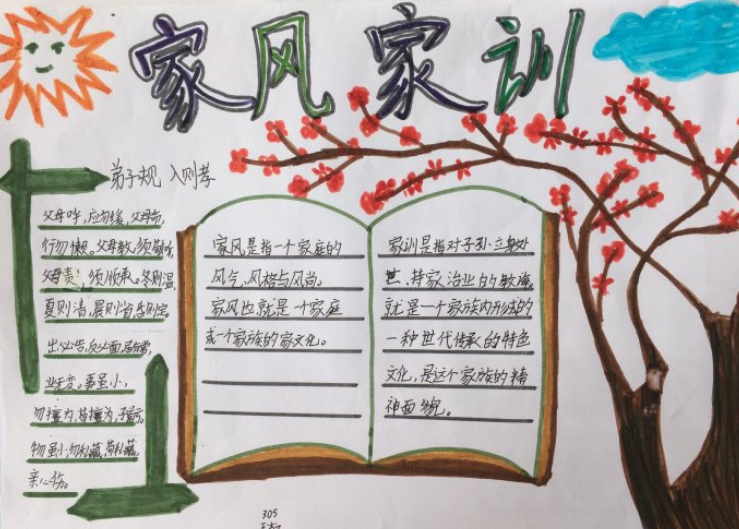 家风家训
弟子规 入则孝
父母呼,应勿缓,父母命,
行勿懒。父母教,须敬听,
父母责,须顺承。冬则温,
夏则清,晨则省,昏则定。
出必告,反必面,居有常,
业无变。事虽小,
勿擅为,苟擅为,子道亏。
物虽小,勿私藏,苟私藏,
亲心伤。
家风是指一个家庭的
风气,风格与风尚。
家风也就是一个家庭
或一个家族的家文化。
家训是指对子孙立身处
世,持家治业的教诲。
就是一个家族内形成的
一种世代传承的特色
文化,是这个家族的精
神面貌。
305